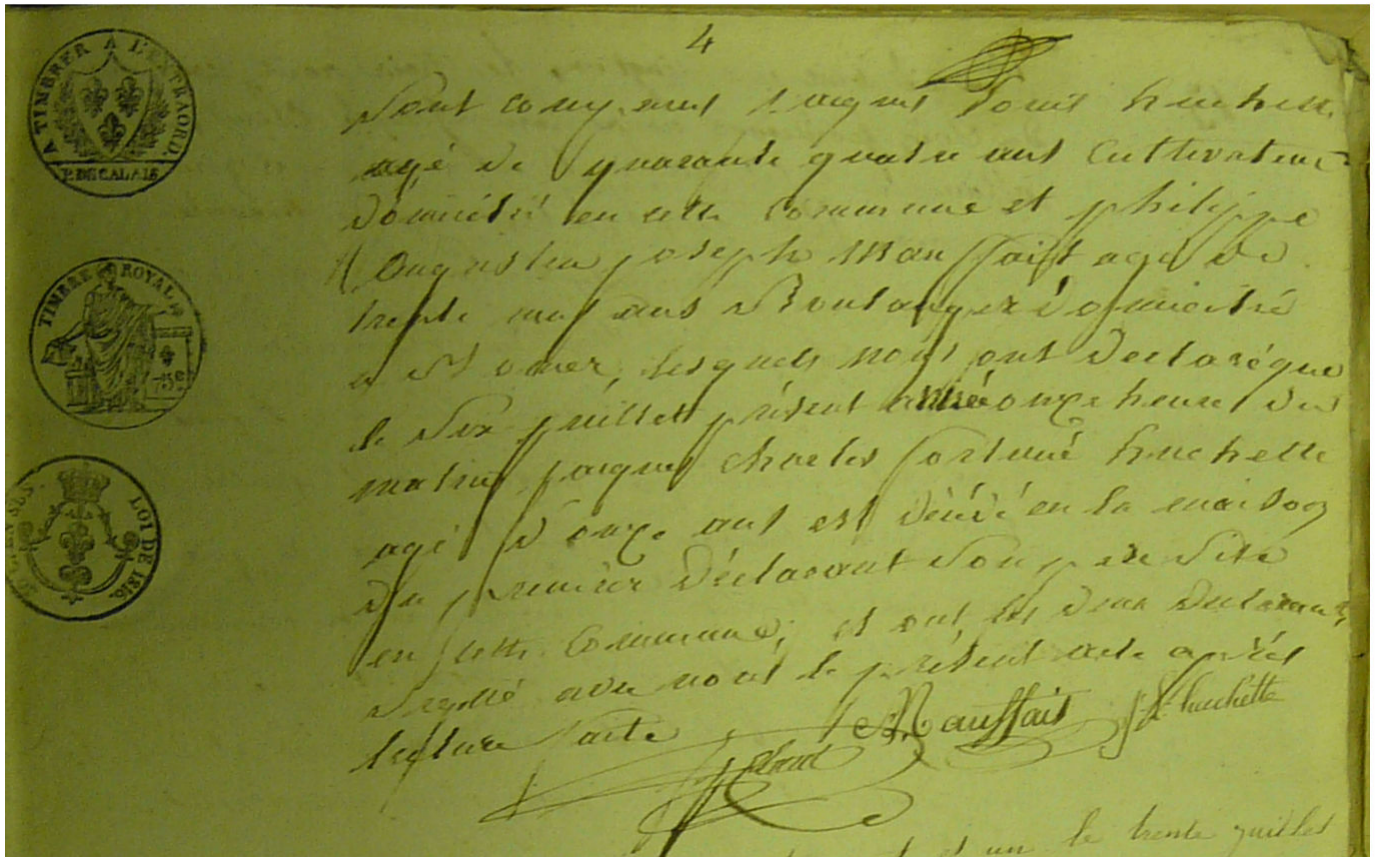 4
A TIMBRER A L'EXTRAORD
P. DE CALAIS
TIMBRE ROYAL
75c
LOI DE 1816.
Sont comparus Jaques Louis huchette
agé de quarante quatre ans Cultivateur
domicilié en cette commune et philippe
Augustin joseph Mauffait agé de
trente neuf ans Boulanger domicilié
a St omer, lesquels nous ont declaré que
le six juillet présent année onze heure du
matin jaques charles fortuné huchette
agé d'onze ans est décédé en la maison
du premier déclarant son pere Site
en cette Commune, et ont les deux declarants
signé avec nous le présent acte après
lecture faite
Mauffait
J L huchette
un le trente juillet